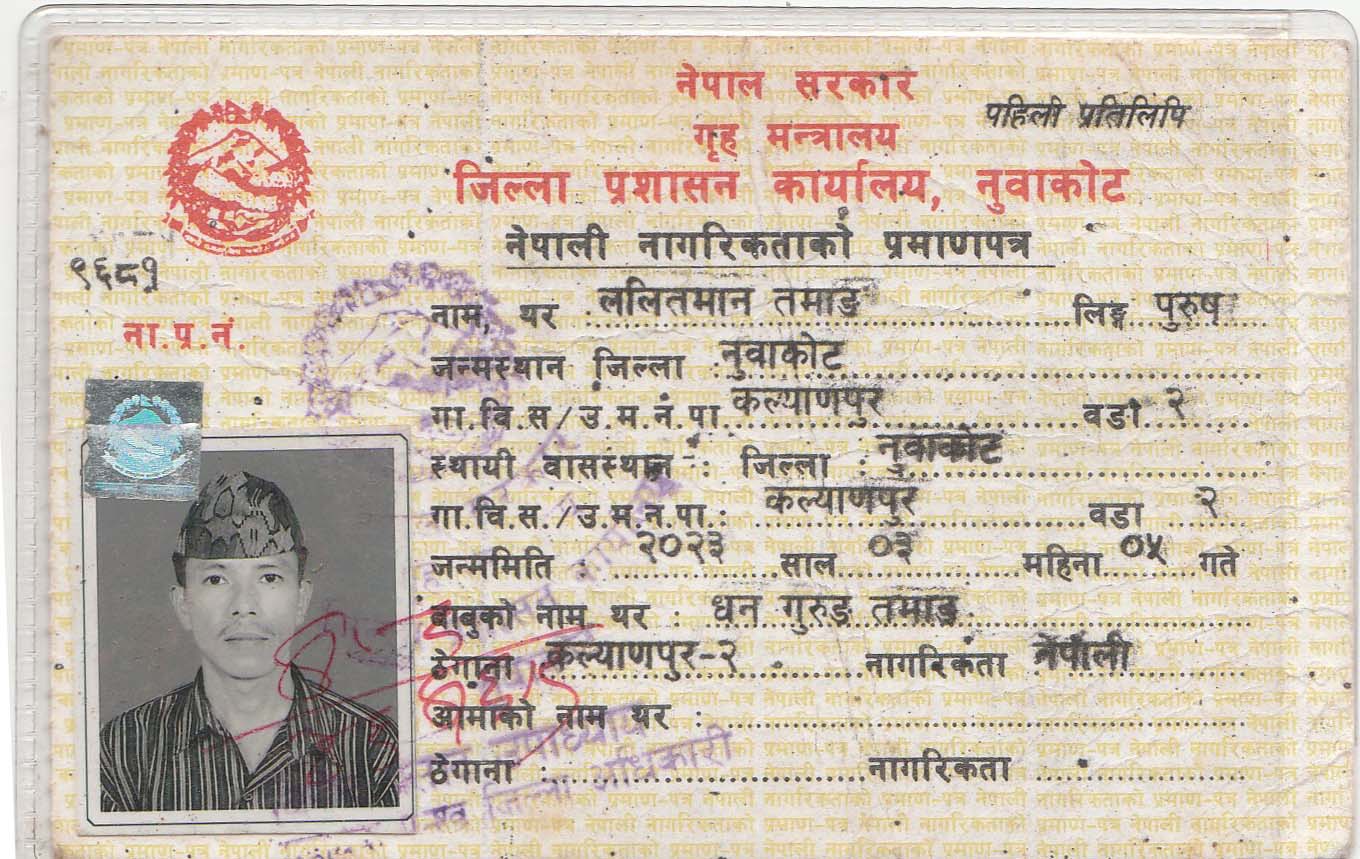 नेपाल सरकार
पहिली प्रतिलिपि
गृह मन्त्रालय
जिल्ला प्रशासन कार्यालय, नुवाकोट
नेपाली नागरिकताको प्रमाणपत्र
९६८१
ना.प्र.नं.
नाम, थर : ललितमान तमाङ लिङ्ग पुरुष
जन्मस्थान जिल्ला : नुवाकोट
गा.वि.स/उ.म.न.पा. कल्याणपुर वडा २
स्थायी वासस्थान : जिल्ला : नुवाकोट
गा.वि.स./उ.म.न.पा. : कल्याणपुर वडा २
जन्ममिति : २०२३ साल ०३ महिना ०५ गते
बाबुको नाम थर : धन गुरुङ तमाङ
ठेगाना कल्याणपुर-२ नागरिकता नेपाली
आमाको नाम थर :
ठेगाना : नागरिकता